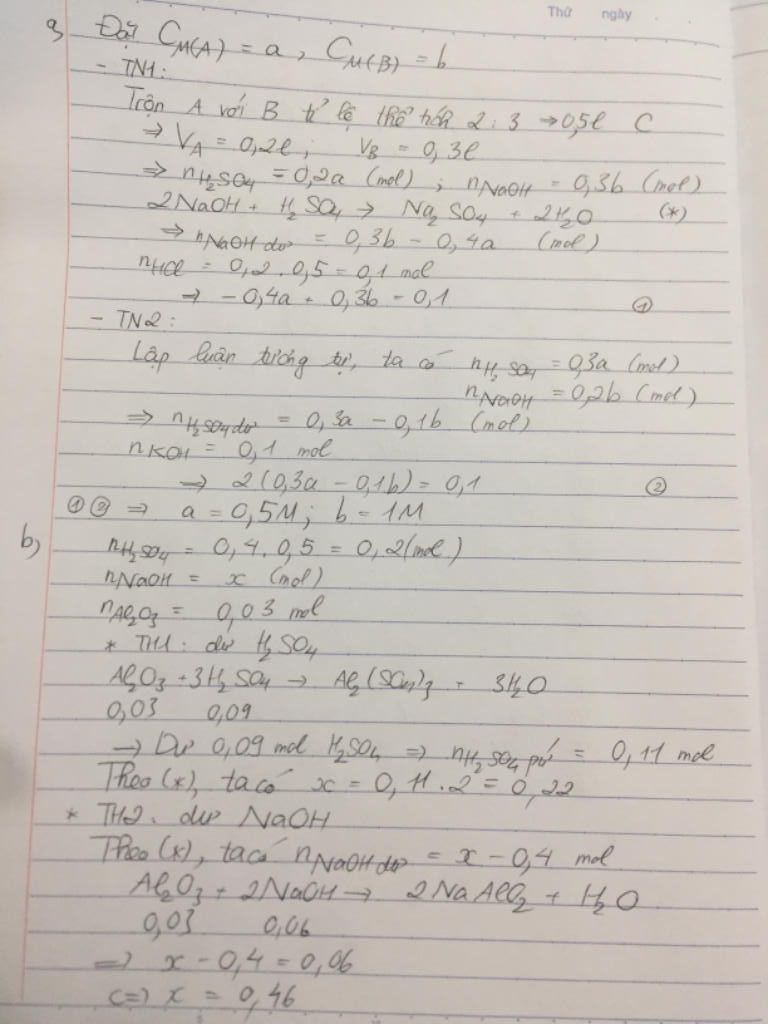 Thứ ngày
a, Đặt C_M(A) = a, C_M(B) = b
- TN1:
Trộn A với B tỉ lệ thể tích 2 : 3 → 0,5l C
⇒ V_A = 0,2l ; V_B = 0,3l
⇒ n_H₂SO₄ = 0,2a (mol) ; n_NaOH = 0,3b (mol)
2NaOH + H₂SO₄ → Na₂SO₄ + 2H₂O (*)
⇒ n_NaOH dư = 0,3b - 0,4a (mol)
n_HCl = 0,2 . 0,5 = 0,1 mol
⇒ - 0,4a + 0,3b - 0,1 ①
- TN2:
Lập luận tương tự, ta có n_H₂SO₄ = 0,3a (mol)
n_NaOH = 0,2b (mol)
⇒ n_H₂SO₄ dư = 0,3a - 0,1b (mol)
n_KOH = 0,1 mol
→ 2(0,3a - 0,1b) = 0,1 ②
① ② ⇒ a = 0,5M ; b = 1M
b, n_H₂SO₄ = 0,4 . 0,5 = 0,2 (mol)
n_NaOH = x (mol)
n_Al₂O₃ = 0,03 mol
* TH1: dư H₂SO₄
Al₂O₃ + 3H₂SO₄ → Al₂(SO₄)₃ + 3H₂O
0,03 0,09
→ Dư 0,09 mol H₂SO₄ ⇒ n_H₂SO₄ pứ = 0,11 mol
Theo (*), ta có x = 0,11 . 2 = 0,22
* TH2. dư NaOH
Theo (*), ta có n_NaOH dư = x - 0,4 mol
Al₂O₃ + 2NaOH → 2NaAlO₂ + H₂O
0,03 0,06
⇒ x - 0,4 = 0,06
<=> x = 0,46